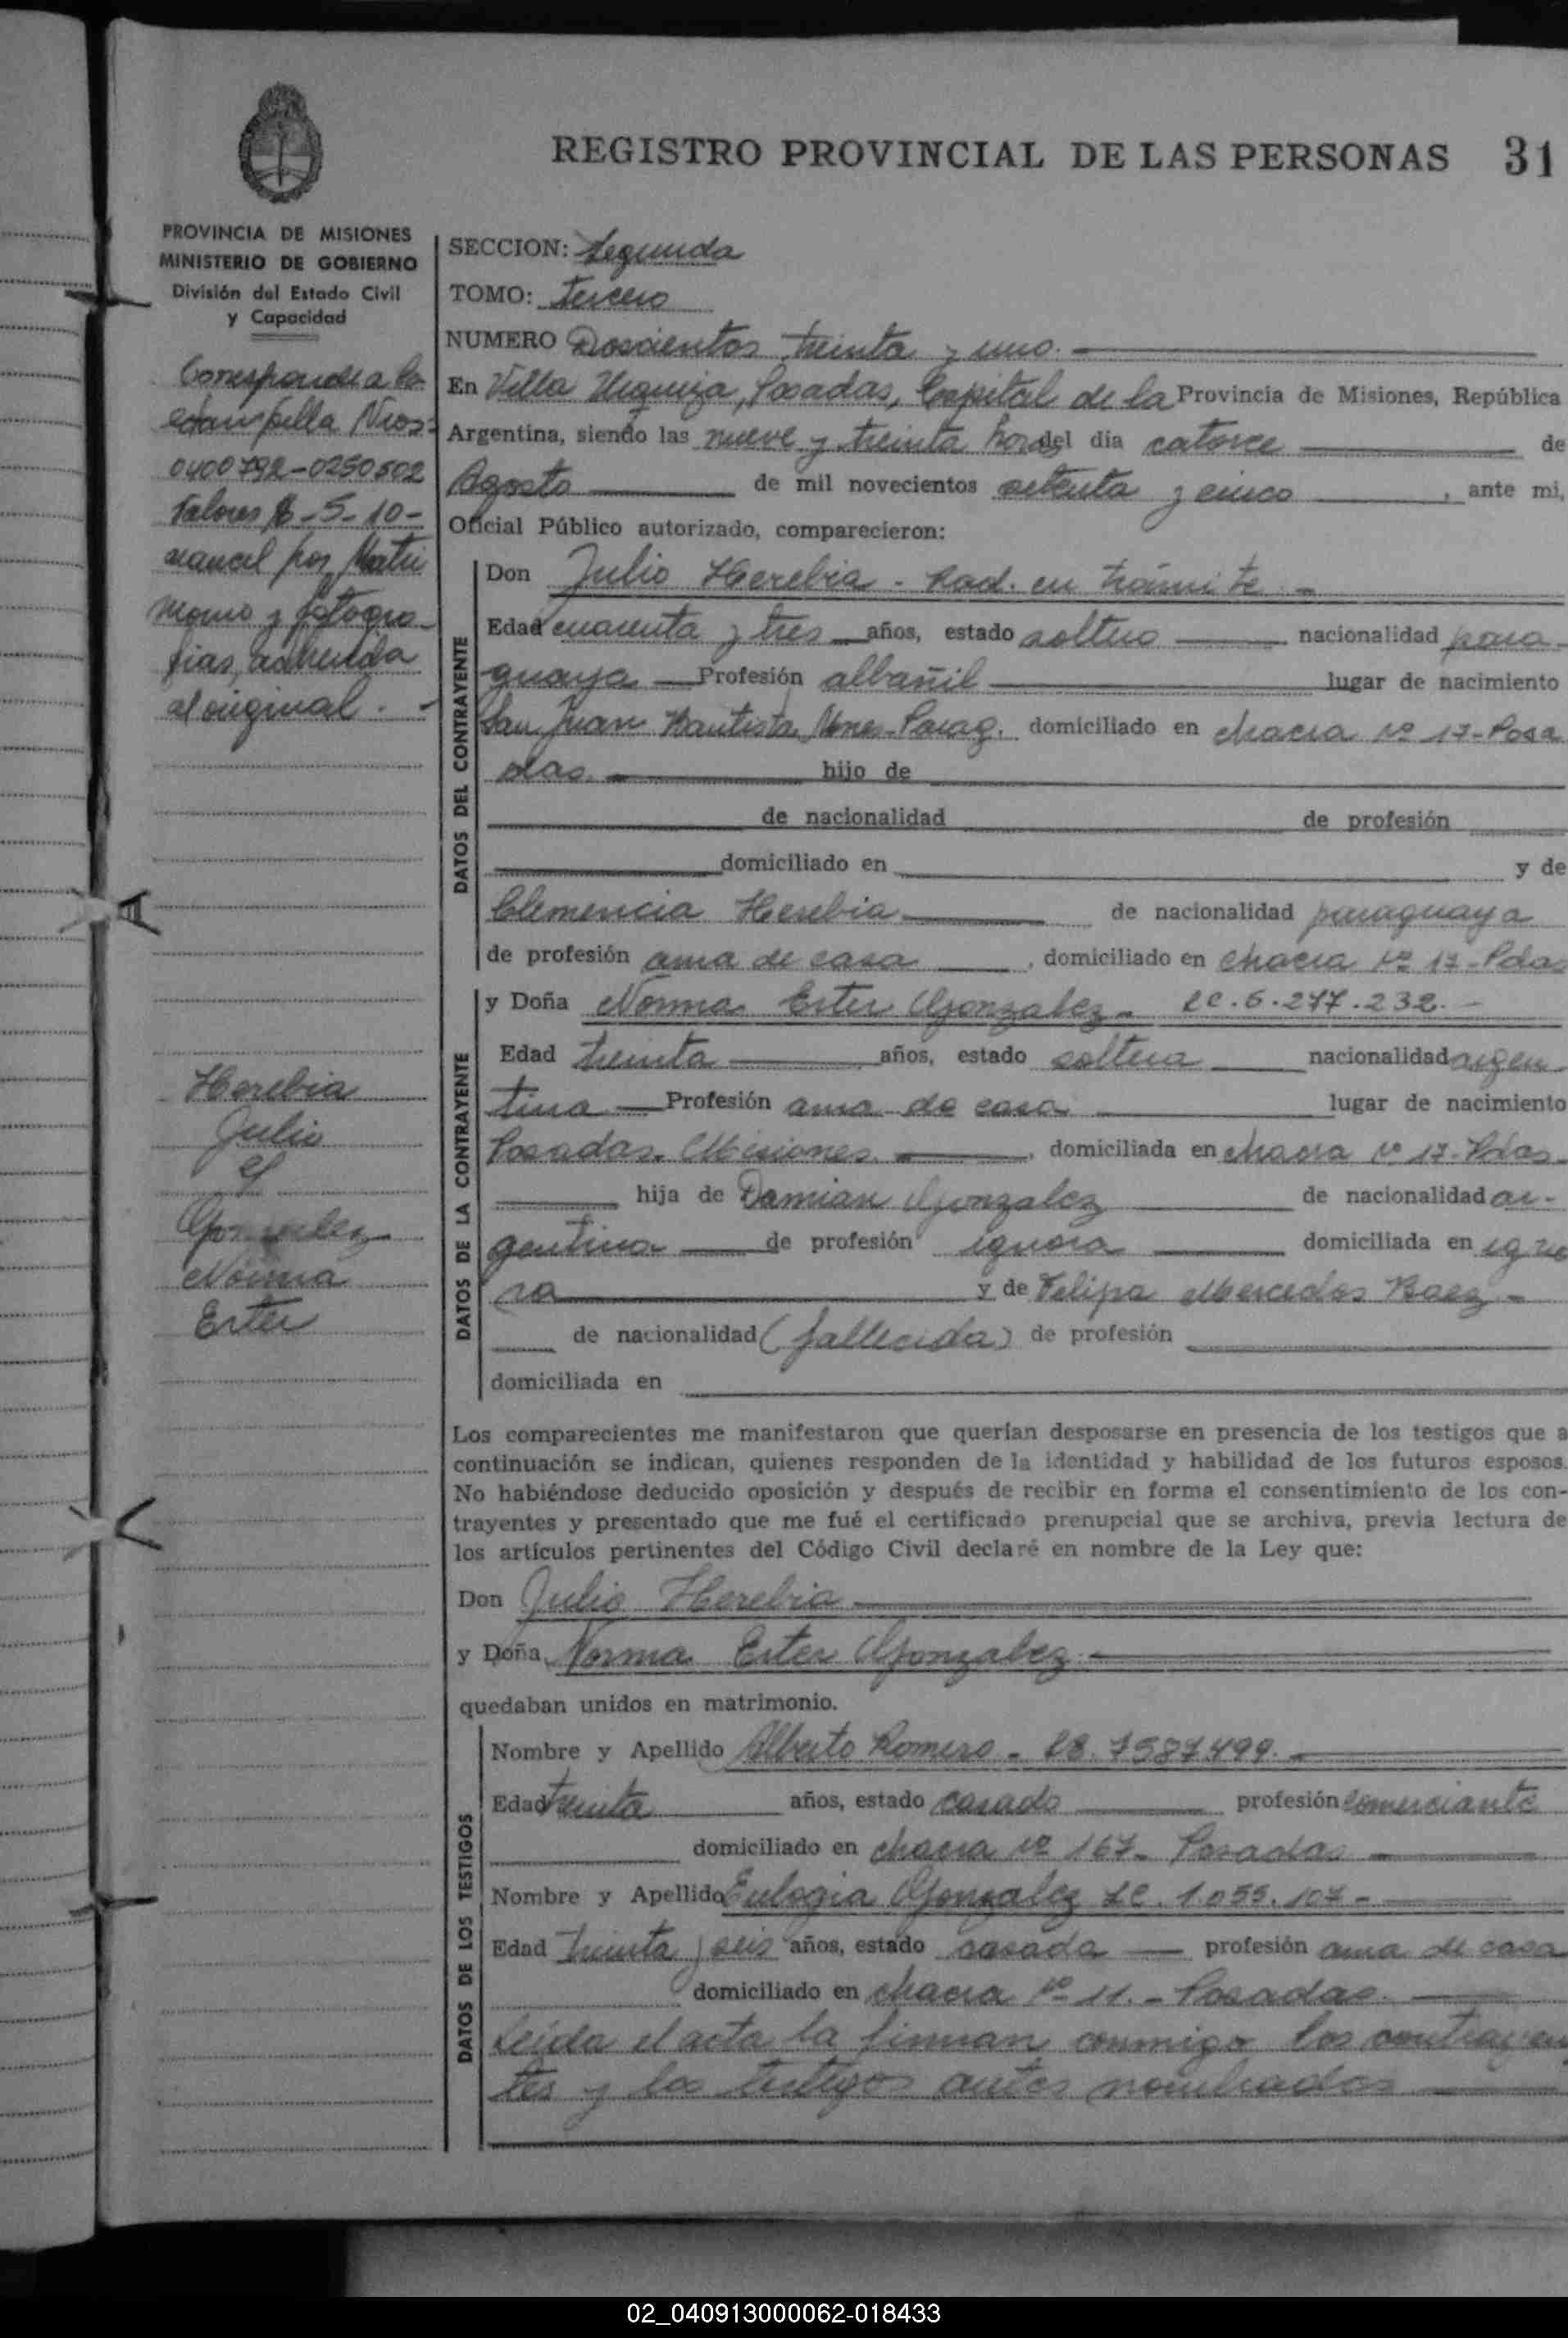 REGISTRO PROVINCIAL DE LAS PERSONAS 31
PROVINCIA DE MISIONES
MINISTERIO DE GOBIERNO
División del Estado Civil
y Capacidad
Corresponde a la
estampilla Nros.
0400792-0250502
Valores $ -5-10-
arancel por Matri
monio y fotogra-
fias, adherida
al original. -
Herebia
Julio
y
Gonzalez
Norma
Ester
SECCION: Segunda
TOMO: Tercero
NUMERO Doscientos treinta y uno.
En Villa Urquiza, Posadas, Capital de la Provincia de Misiones, República
Argentina, siendo las nueve y treinta horas del día catorce de
Agosto de mil novecientos setenta y cinco, ante mi,
Oficial Público autorizado, comparecieron:
DATOS DEL CONTRAYENTE
Don Julio Herebia - Rad. en trámite -
Edad cuarenta y tres años, estado soltero nacionalidad para-
guaya Profesión albañil lugar de nacimiento
San Juan Bautista Mnes-Parag. domiciliado en chacra Nº 17-Posa
das. hijo de
de nacionalidad de profesión
domiciliado en y de
Clemencia Herebia de nacionalidad paraguaya
de profesión ama de casa, domiciliado en chacra Nº 17-Pdas
DATOS DE LA CONTRAYENTE
y Doña Norma Ester Gonzalez - LC. 6.277.232. -
Edad treinta años, estado soltera nacionalidad argen-
tina Profesión ama de casa lugar de nacimiento
Posadas. Misiones, domiciliada en chacra Nº 17-Pdas-
hija de Damian Gonzalez de nacionalidad ar-
gentina de profesión ignora domiciliada en igno
ra y de Felipa Mercedes Baez -
de nacionalidad (fallecida) de profesión
domiciliada en
Los comparecientes me manifestaron que querían desposarse en presencia de los testigos que a
continuación se indican, quienes responden de la identidad y habilidad de los futuros esposos.
No habiéndose deducido oposición y después de recibir en forma el consentimiento de los con-
trayentes y presentado que me fué el certificado prenupcial que se archiva, previa lectura de
los artículos pertinentes del Código Civil declaré en nombre de la Ley que:
Don Julio Herebia
y Doña Norma Ester Gonzalez
quedaban unidos en matrimonio.
DATOS DE LOS TESTIGOS
Nombre y Apellido Alberto Romero - LE 7587499.
Edad treinta años, estado casado profesión comerciante
domiciliado en chacra Nº 167- Posadas
Nombre y Apellido Eulogia Gonzalez LC. 1.055.107-
Edad treinta y seis años, estado casada profesión ama de casa
domiciliado en chacra Nº 11. - Posadas.
Leída el acta la firman conmigo los contrayen
tes y los testigos antes nombrados
02_040913000062-018433